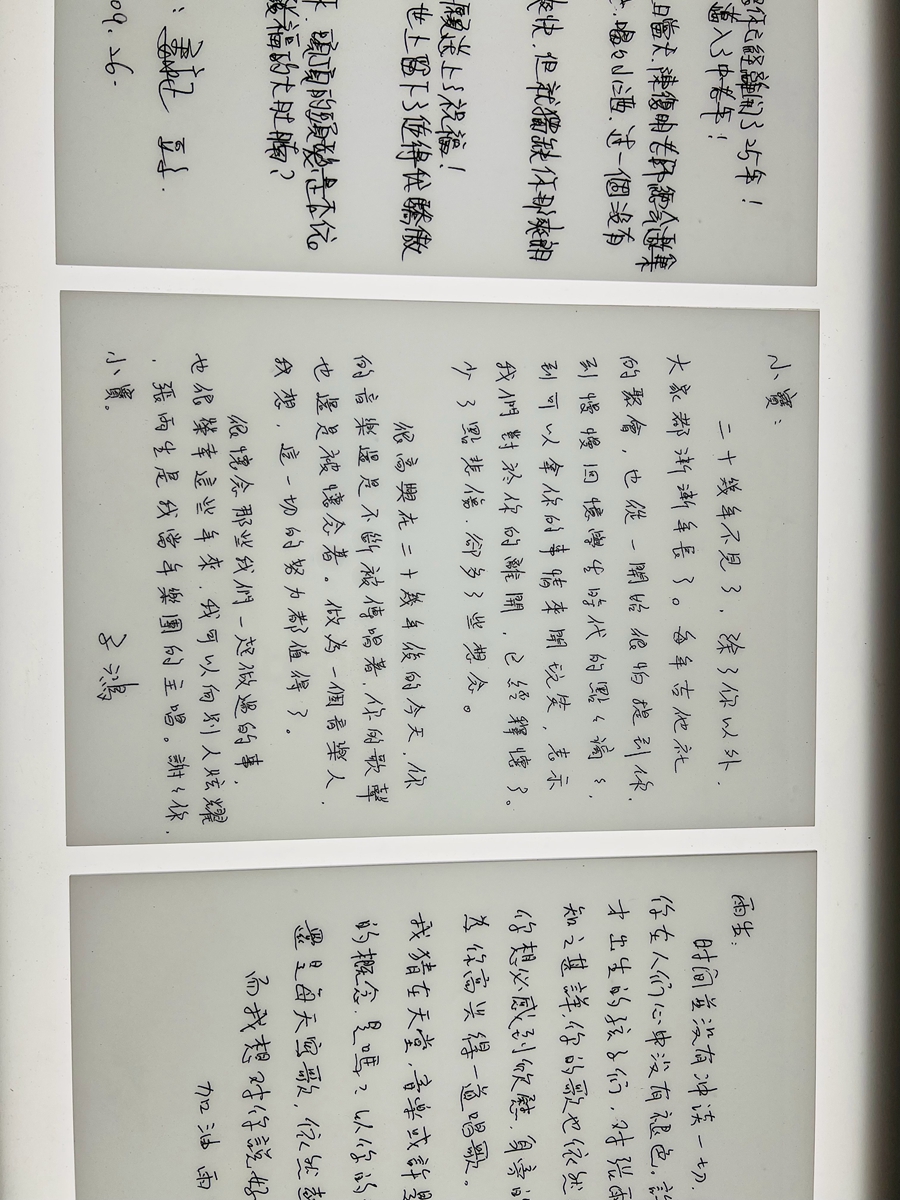 已經離開了25年！
進入了中老年！
喝的小酒．過一個沒有
爽快．但就獨缺你那爽朗
假送上了祝福！
世上留下了值得我驕傲
09. 26.
小寶：
二十幾年不見了．除了你以外．
大家都漸漸年長了。每年吉他社
的聚會，也從一開始很怕提到你．
到慢慢回憶學生時代的點點滴滴．
到可以拿你的事情來開玩笑．表示
我們對於你的離開．已經釋懷了。
少了點悲傷．卻多了些想念。
很高興在二十幾年後的今天．你
的音樂還是不斷被傳唱著．你的歌聲
也還是被懷念著。做為一個音樂人．
我想．這一切的努力都值得了。
很懷念那些我們一起做過的事．
也很榮幸這些年來．我可以向別人炫耀
．張雨生是我當年樂團的主唱。謝謝你．
小寶。
雨生：
時间並没有冲淡一切．
你在人们心中没有褪色．許
才出生的孩子们，对張雨
知之甚詳，你的歌也依然
你想必感到欣慰．身旁的
為你高兴得一道唱歌。
我猜在天堂，音楽或許是
的概念．是嗎？以你的
還是每天寫歌．依然
而我想对你説
加油雨